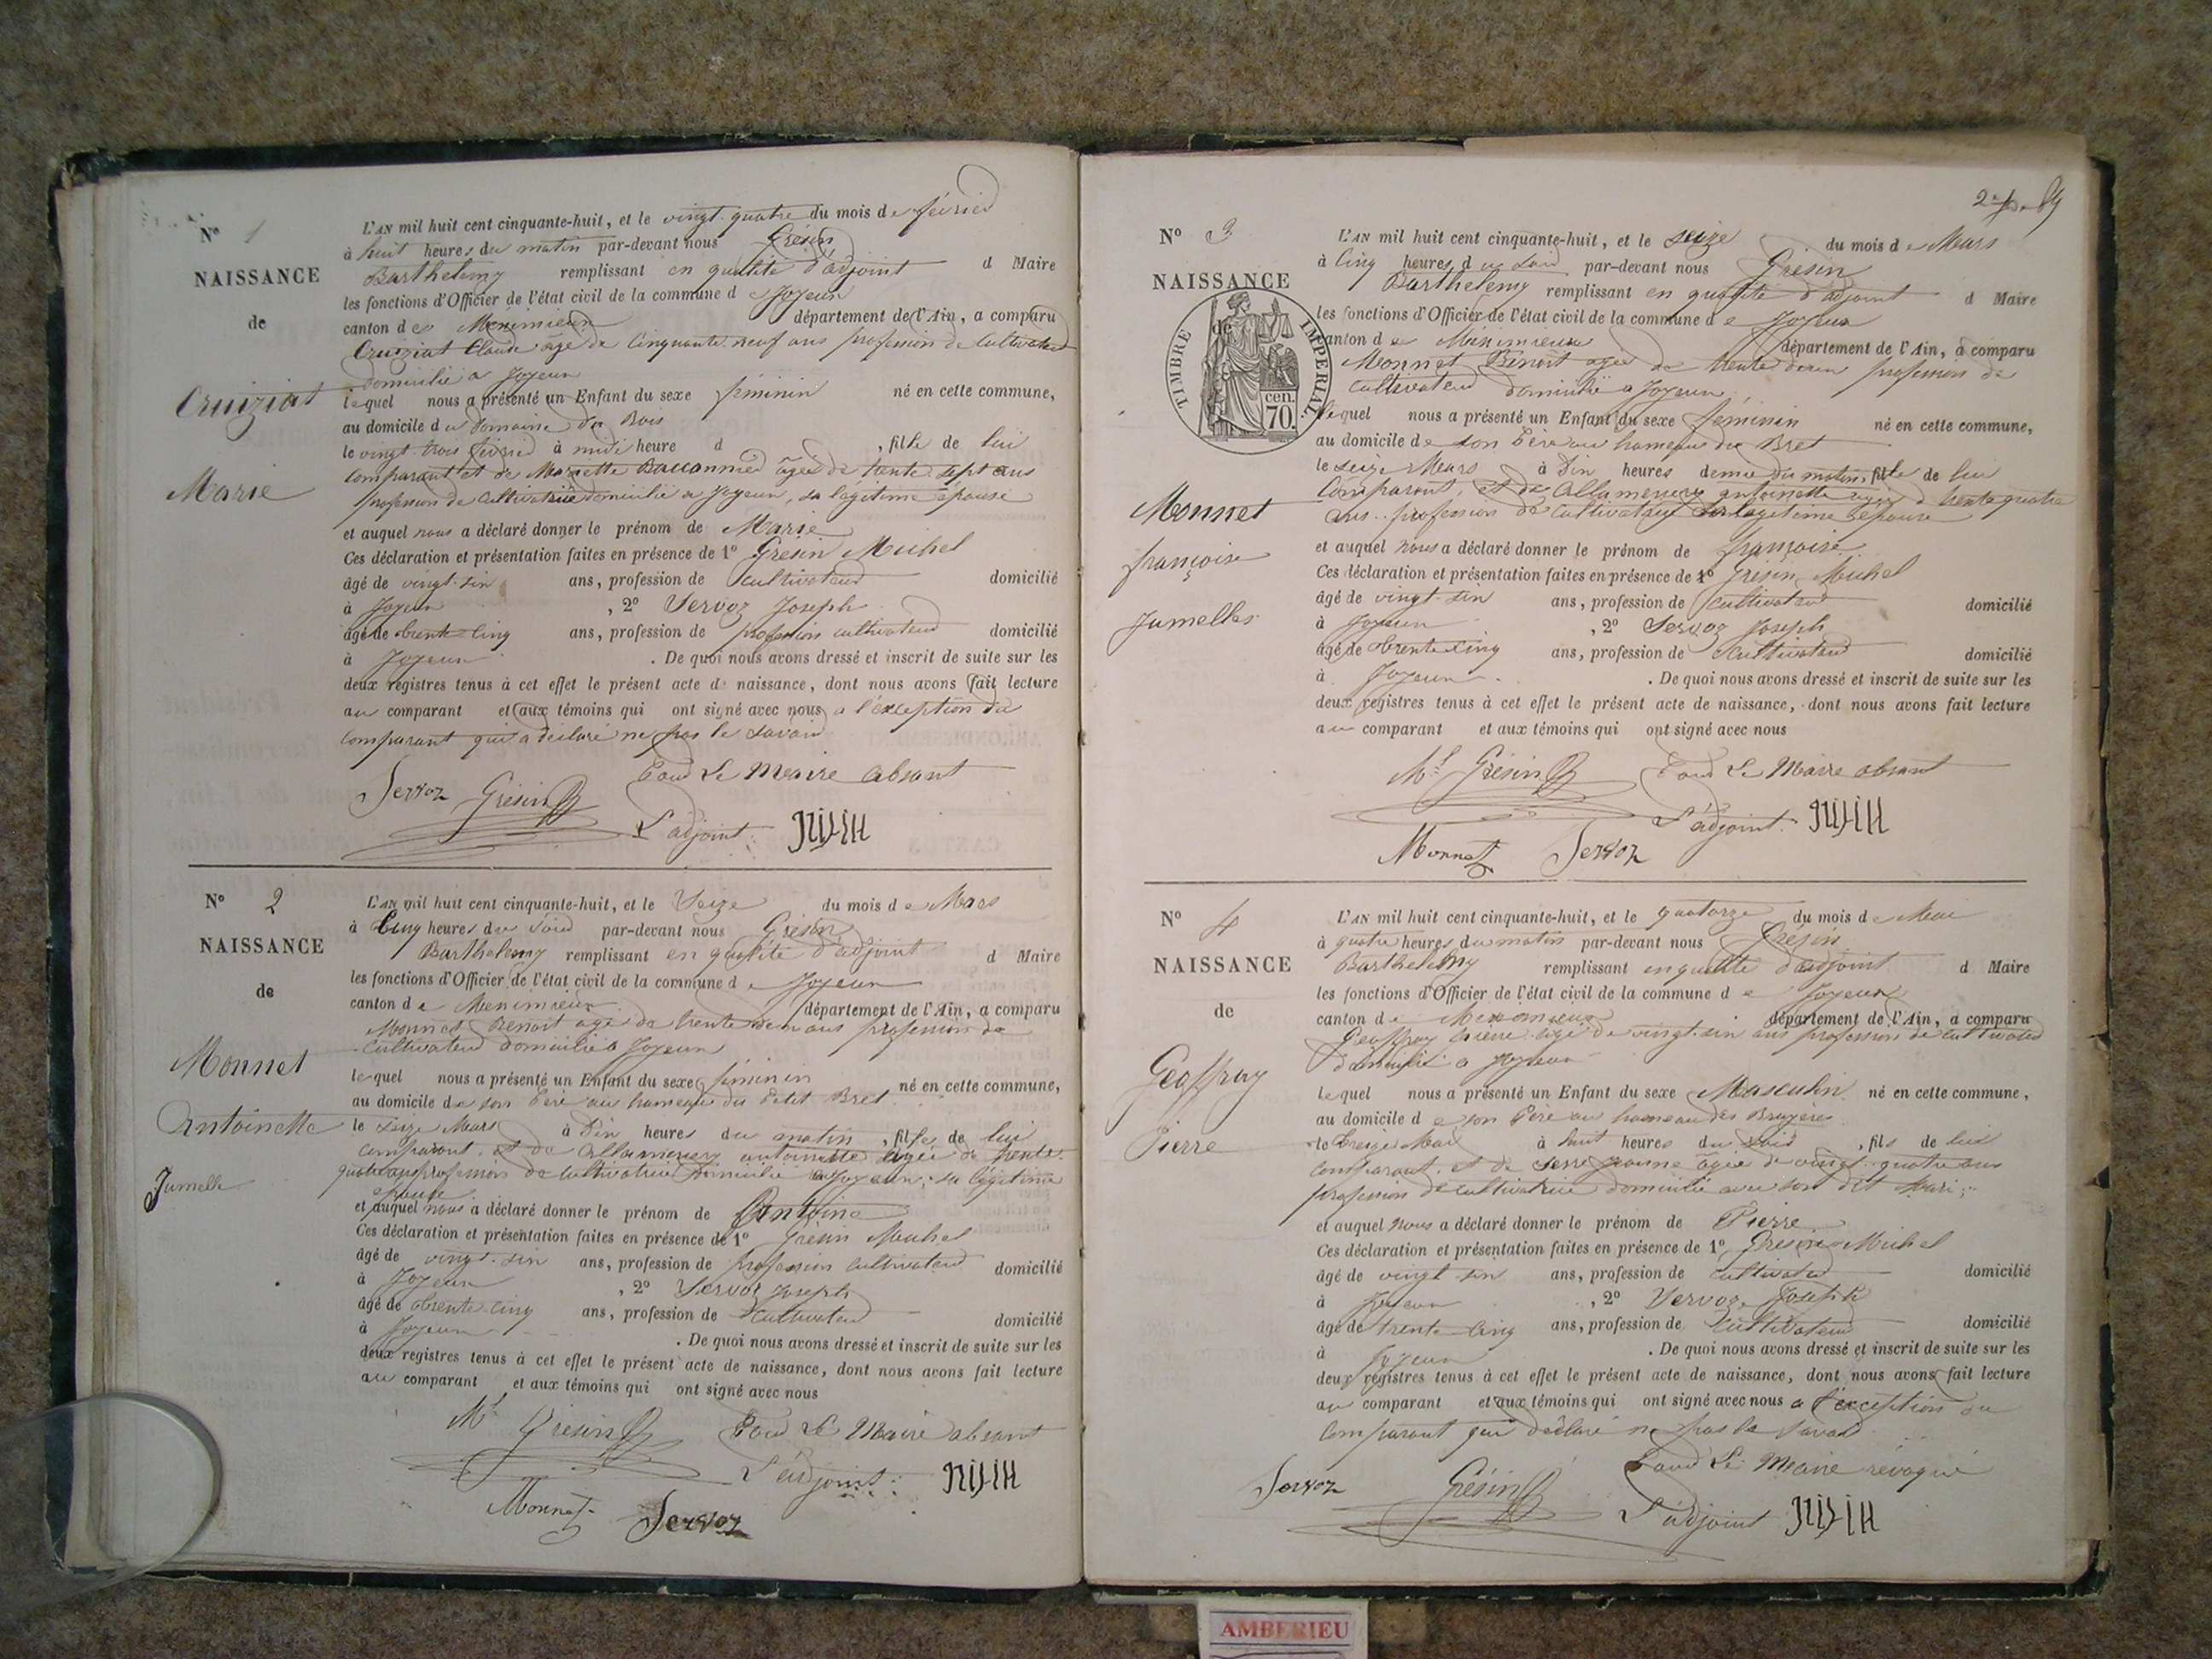 N° 1
NAISSANCE
de
Cruiziat
Marie
L'AN mil huit cent cinquante-huit, et le vingt quatre du mois de février
à huit heures du matin par-devant nous Grésin
Barthelemy remplissant en qualité d'adjoint d Maire
les fonctions d'Officier de l'état civil de la commune de Joyeux
canton de Meximieux département de l'Ain, a comparu
Cruiziat Claude age de Cinquante neuf ans profession de Cultivateur
domicilié a Joyeux
lequel nous a présenté un Enfant du sexe féminin né en cette commune,
au domicile du domaine du Bois
le vingt trois février à midi heure d , fille de lui
comparant et de Mariette agée de trente sept ans
profession de Cultivatrice domicilié a Joyeux, sa legitime épouse
et auquel nous a déclaré donner le prénom de Marie
Ces déclaration et présentation faites en présence de 1° Gresin Michel
âgé de vingt-six ans, profession de Cultivateur domicilié
à Joyeux , 2° Servoz Joseph
âgé de trente-cinq ans, profession de profession cultivateur domicilié
à Joyeux . De quoi nous avons dressé et inscrit de suite sur les
deux registres tenus à cet effet le présent acte de naissance, dont nous avons fait lecture
au comparant et aux témoins qui ont signé avec nous a l'exception du
comparant qui a déclaré ne pas le savoir
Pour Le Maire absant
Servoz Grésin
L'adjoint
N° 2
NAISSANCE
de
Monnet
Antoinette
Jumelle
L'AN mil huit cent cinquante-huit, et le Seize du mois de Mars
à Cinq heures du soir par-devant nous Grésin
Barthelemy remplissant en qualité d'adjoint d Maire
les fonctions d'Officier de l'état civil de la commune de Joyeux
canton de Meximieux département de l'Ain, a comparu
Monnet Benoit age de trente deux ans profession de
Cultivateur domicilié a Joyeux
lequel nous a présenté un Enfant du sexe féminin né en cette commune,
au domicile de son Père au hameau du Petit Bret
le seize Mars à Dix heures du matin , fille de lui
comparant, et de antoinette agée de trente
quatre ans profession de Cultivatrice domicilié a Joyeux, sa légitime
épouse
et auquel nous a déclaré donner le prénom de Antoine
Ces déclaration et présentation faites en présence de 1° Grésin Michel
âgé de vingt-six ans, profession de profession cultivateur domicilié
à Joyeux , 2° Servoz Joseph
âgé de trente-cinq ans, profession de Cultivateur domicilié
à Joyeux . De quoi nous avons dressé et inscrit de suite sur les
deux registres tenus à cet effet le présent acte de naissance, dont nous avons fait lecture
au comparant et aux témoins qui ont signé avec nous
Ml Grésin Pour Le Maire absant
L'adjoint
Monnet Servoz
N° 3
NAISSANCE
de
TIMBRE IMPERIAL
cen.
70.
Monnet
françoise
Jumelles
L'AN mil huit cent cinquante-huit, et le seize du mois de Mars
à Cinq heures du soir par-devant nous Gresin
Barthelemy remplissant en qualité d'adjoint d Maire
les fonctions d'Officier de l'état civil de la commune de Joyeux
canton de Meximieux département de l'Ain, a comparu
Monnet Benoit agee de trente deux profession de
Cultivateur domicilié a Joyeux
lequel nous a présenté un Enfant du sexe féminin né en cette commune,
au domicile de son Père au hameau du Bret
le seize Mars à Dix heures demie du matin, fille de lui
comparant, et de antoinette agee d trente quatre
ans profession de Cultivatrice sa legitime épouse
et auquel nous a déclaré donner le prénom de françoise
Ces déclaration et présentation faites en présence de 1° Grésin Michel
âgé de vingt-six ans, profession de Cultivateur domicilié
à Joyeux , 2° Servoz Joseph
âgé de trente-cinq ans, profession de Cultivateur domicilié
à Joyeux . De quoi nous avons dressé et inscrit de suite sur les
deux registres tenus à cet effet le présent acte de naissance, dont nous avons fait lecture
au comparant et aux témoins qui ont signé avec nous
Ml Grésin Pour Le Maire absant
L'adjoint
Monnet Servoz
N° 4
NAISSANCE
de
Geoffray
Pierre
L'AN mil huit cent cinquante-huit, et le quatorze du mois de Mai
à quatre heures du matin par-devant nous Grésin
Barthelemy remplissant en qualité d'adjoint d Maire
les fonctions d'Officier de l'état civil de la commune de Joyeux
canton de Meximieux département de l'Ain, a comparu
Geoffray Pierre agé de vingt-six ans profession de cultivateur
domicilié a Joyeux
lequel nous a présenté un Enfant du sexe Masculin né en cette commune,
au domicile de son Père au hameau des Bruyères
le treize Mai à huit heures du soir , fils de lui
comparant, et de Serre Jeanne agée de vingt-quatre ans
profession de cultivatrice domicilié avec son dit Mari;
et auquel nous a déclaré donner le prénom de Pierre
Ces déclaration et présentation faites en présence de 1° Gresin Michel
âgé de vingt-six ans, profession de cultivateur domicilié
à Joyeux , 2° Servoz Joseph
âgé de trente-cinq ans, profession de Cultivateur domicilié
à Joyeux . De quoi nous avons dressé et inscrit de suite sur les
deux registres tenus à cet effet le présent acte de naissance, dont nous avons fait lecture
au comparant et aux témoins qui ont signé avec nous a l'exception du
comparant qui déclaré ne pas le savoir
Pour Le Maire révoqué
Servoz Grésin
L'adjoint
AMBERIEU